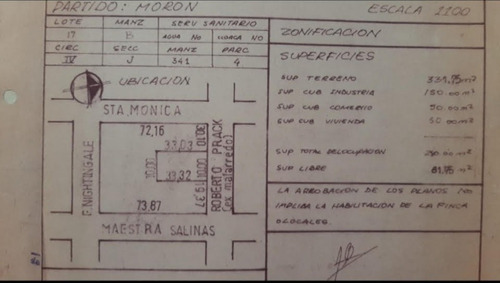 PARTIDO: MORON
ESCALA 1100
LOTE MANZ SERV SANITARIO
17 B AGUA NO CLOACA NO
CIRC SECC MANZ PARC
IV J 341 4
UBICACION
STA. MONICA
72,16
33,03
10,00
33,32
10,00
73,87
F. NIGHTINGALE
ROBERTO PRACK
(ex malarredo)
MAESTRA SALINAS
ZONIFICACION
SUPERFICIES
SUP TERRENO 331,75 m²
SUP CUB INDUSTRIA 150.00 m²
SUP CUB COMERCIO 50.00 m²
SUP CUB VIVIENDA 50.00 m²
SUP TOTAL DE OCUPACION
SUP LIBRE 81,75 m²
LA APROBACION DE LOS PLANOS NO
IMPLICA LA HABILITACION DE LA FINCA
O LOCALES.